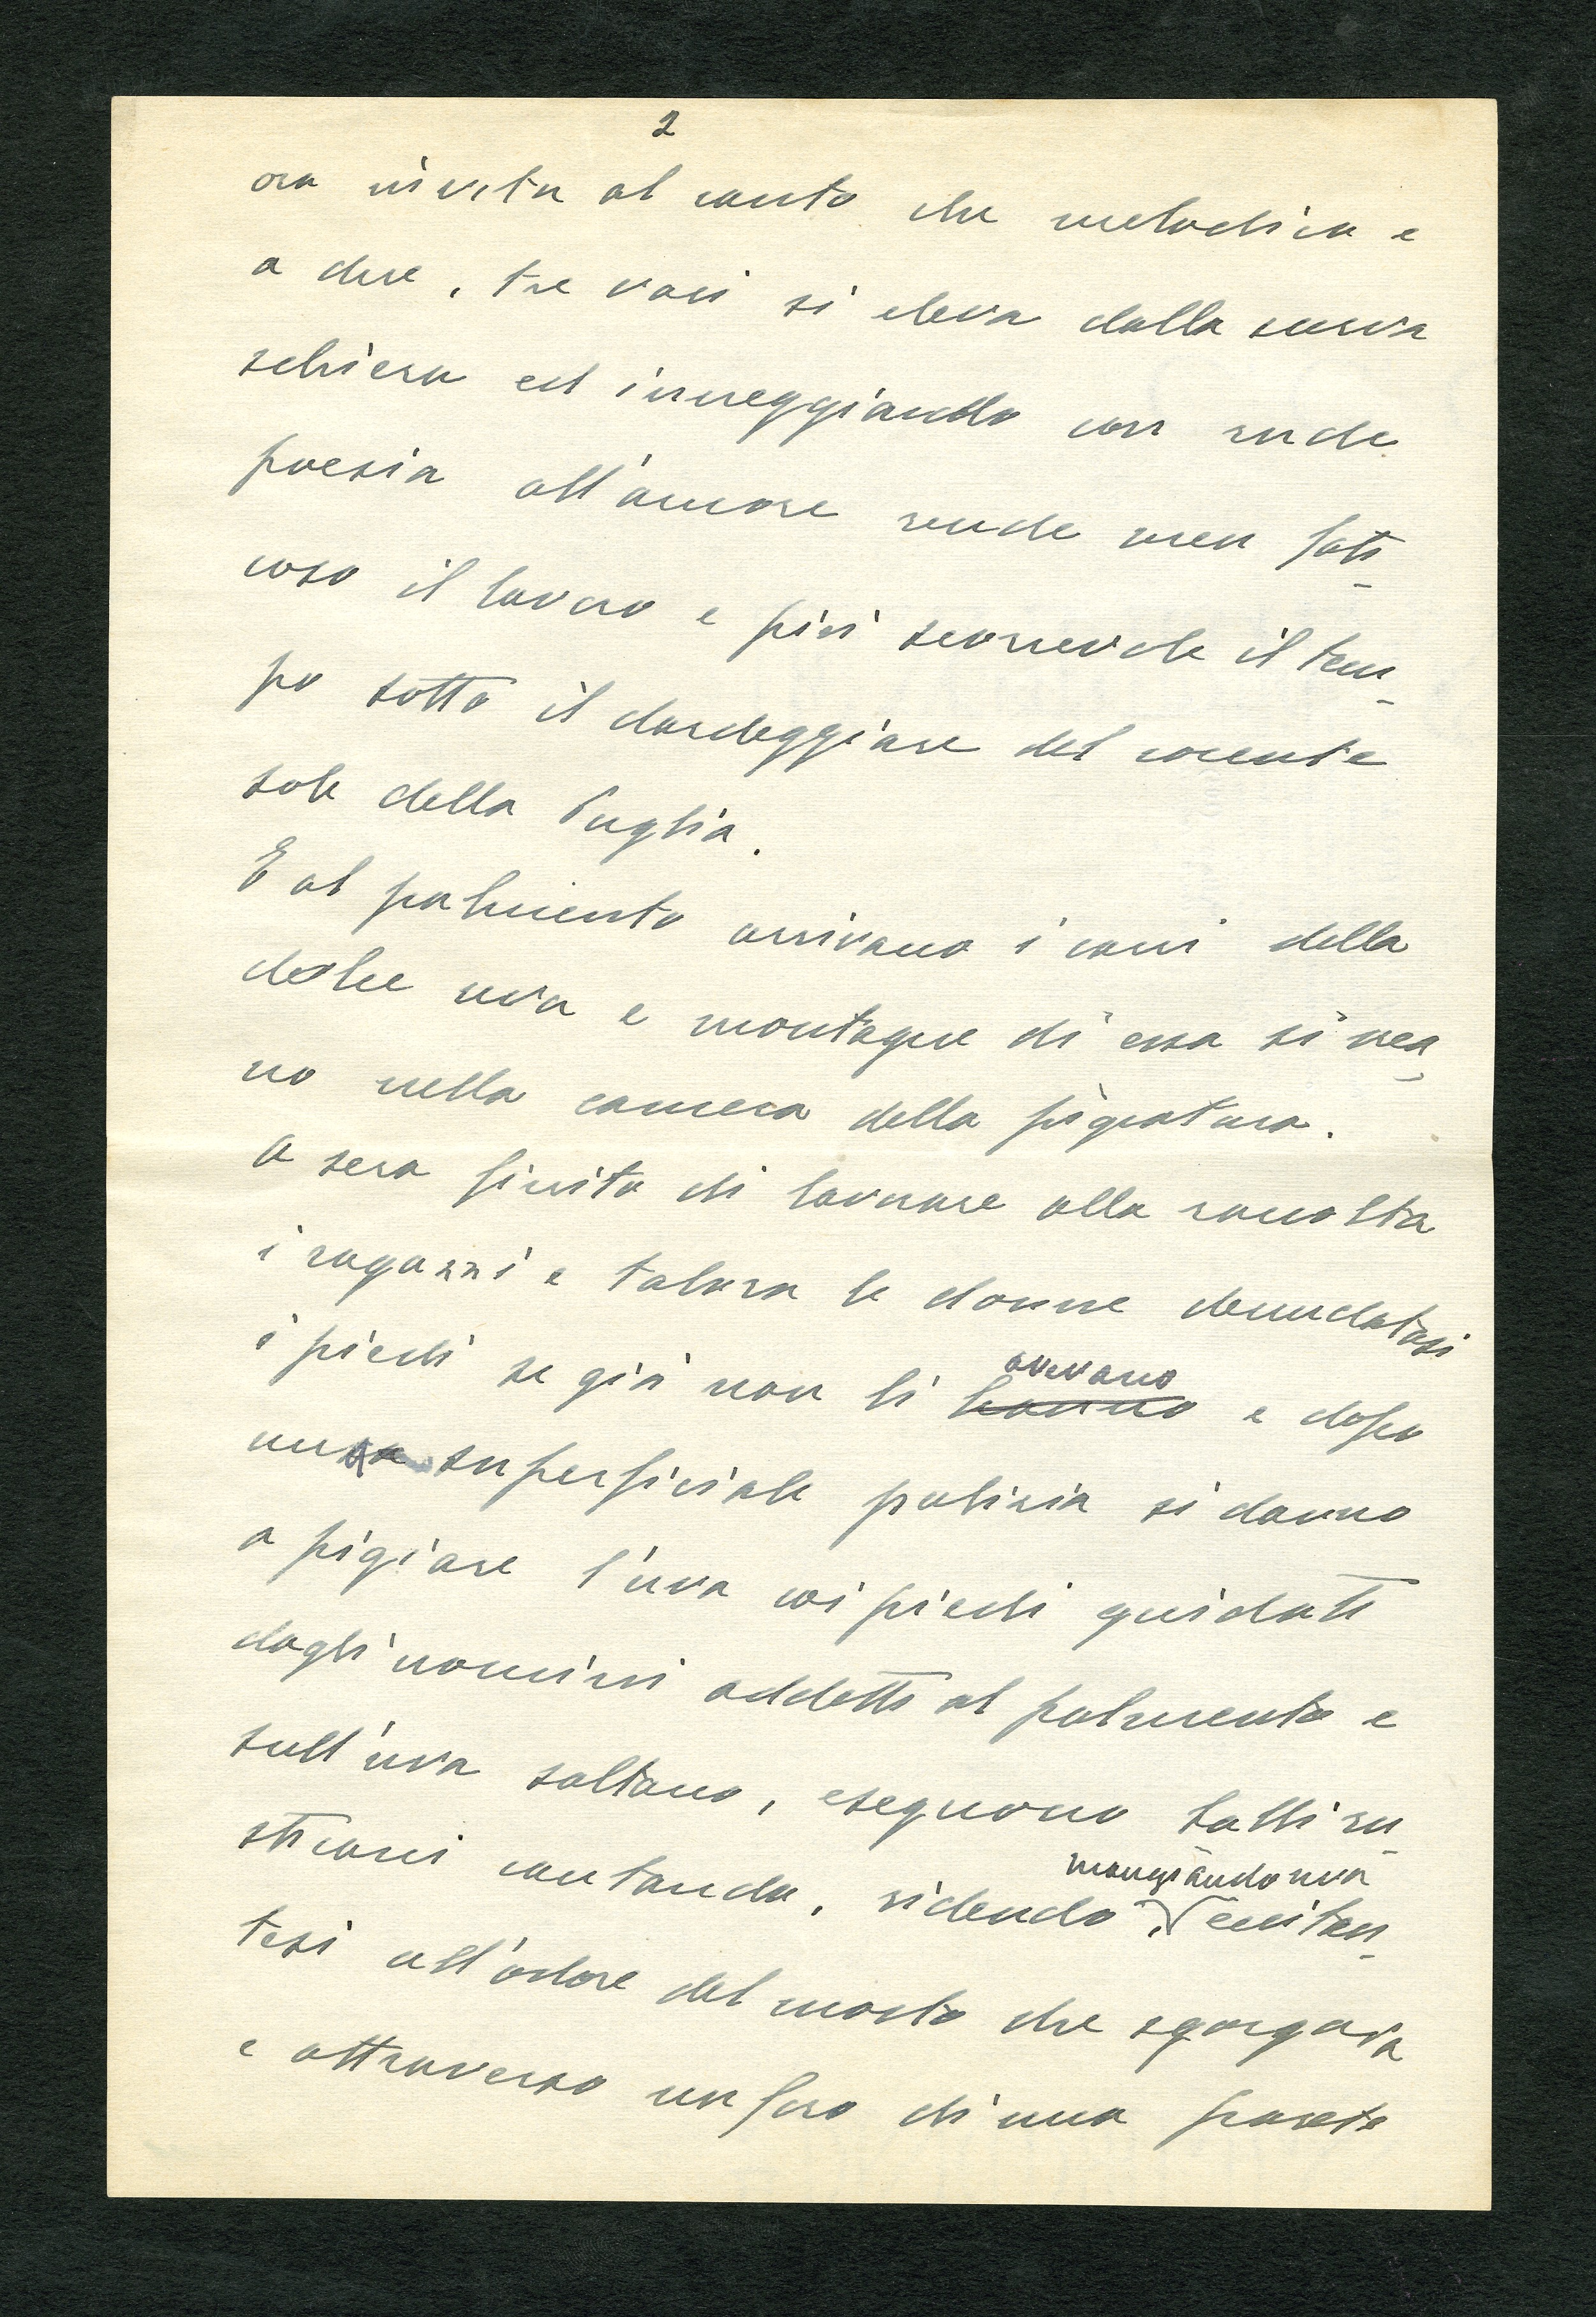 2
ora invita al canto che melodica e
a due, tre voci si eleva dalla curva
schiera ed inneggiando con rude
poesia all'amore rende men fati-
coso il lavoro e più scorrevole il tem-
po sotto il dardeggiare del cocente
sole della Puglia.
E al palmento arrivano i carri della
dolce uva e montagne di essa si
no nella camera della pigiatura.
A sera finito di lavorare alla raccolta
i ragazzi e talora le donne denudatasi
i piedi se già non li avevano hanno e dopo
una superficiale pulizia si danno
a pigiare l'uva coi piedi guidati
dagli uomini addetti al palmento e
sull'uva saltano, eseguono balli ru-
sticani cantando, ridendo, mangiando uva eccitan-
tesi all'odore del mosto che sgorga
e attraverso un foro di una parete